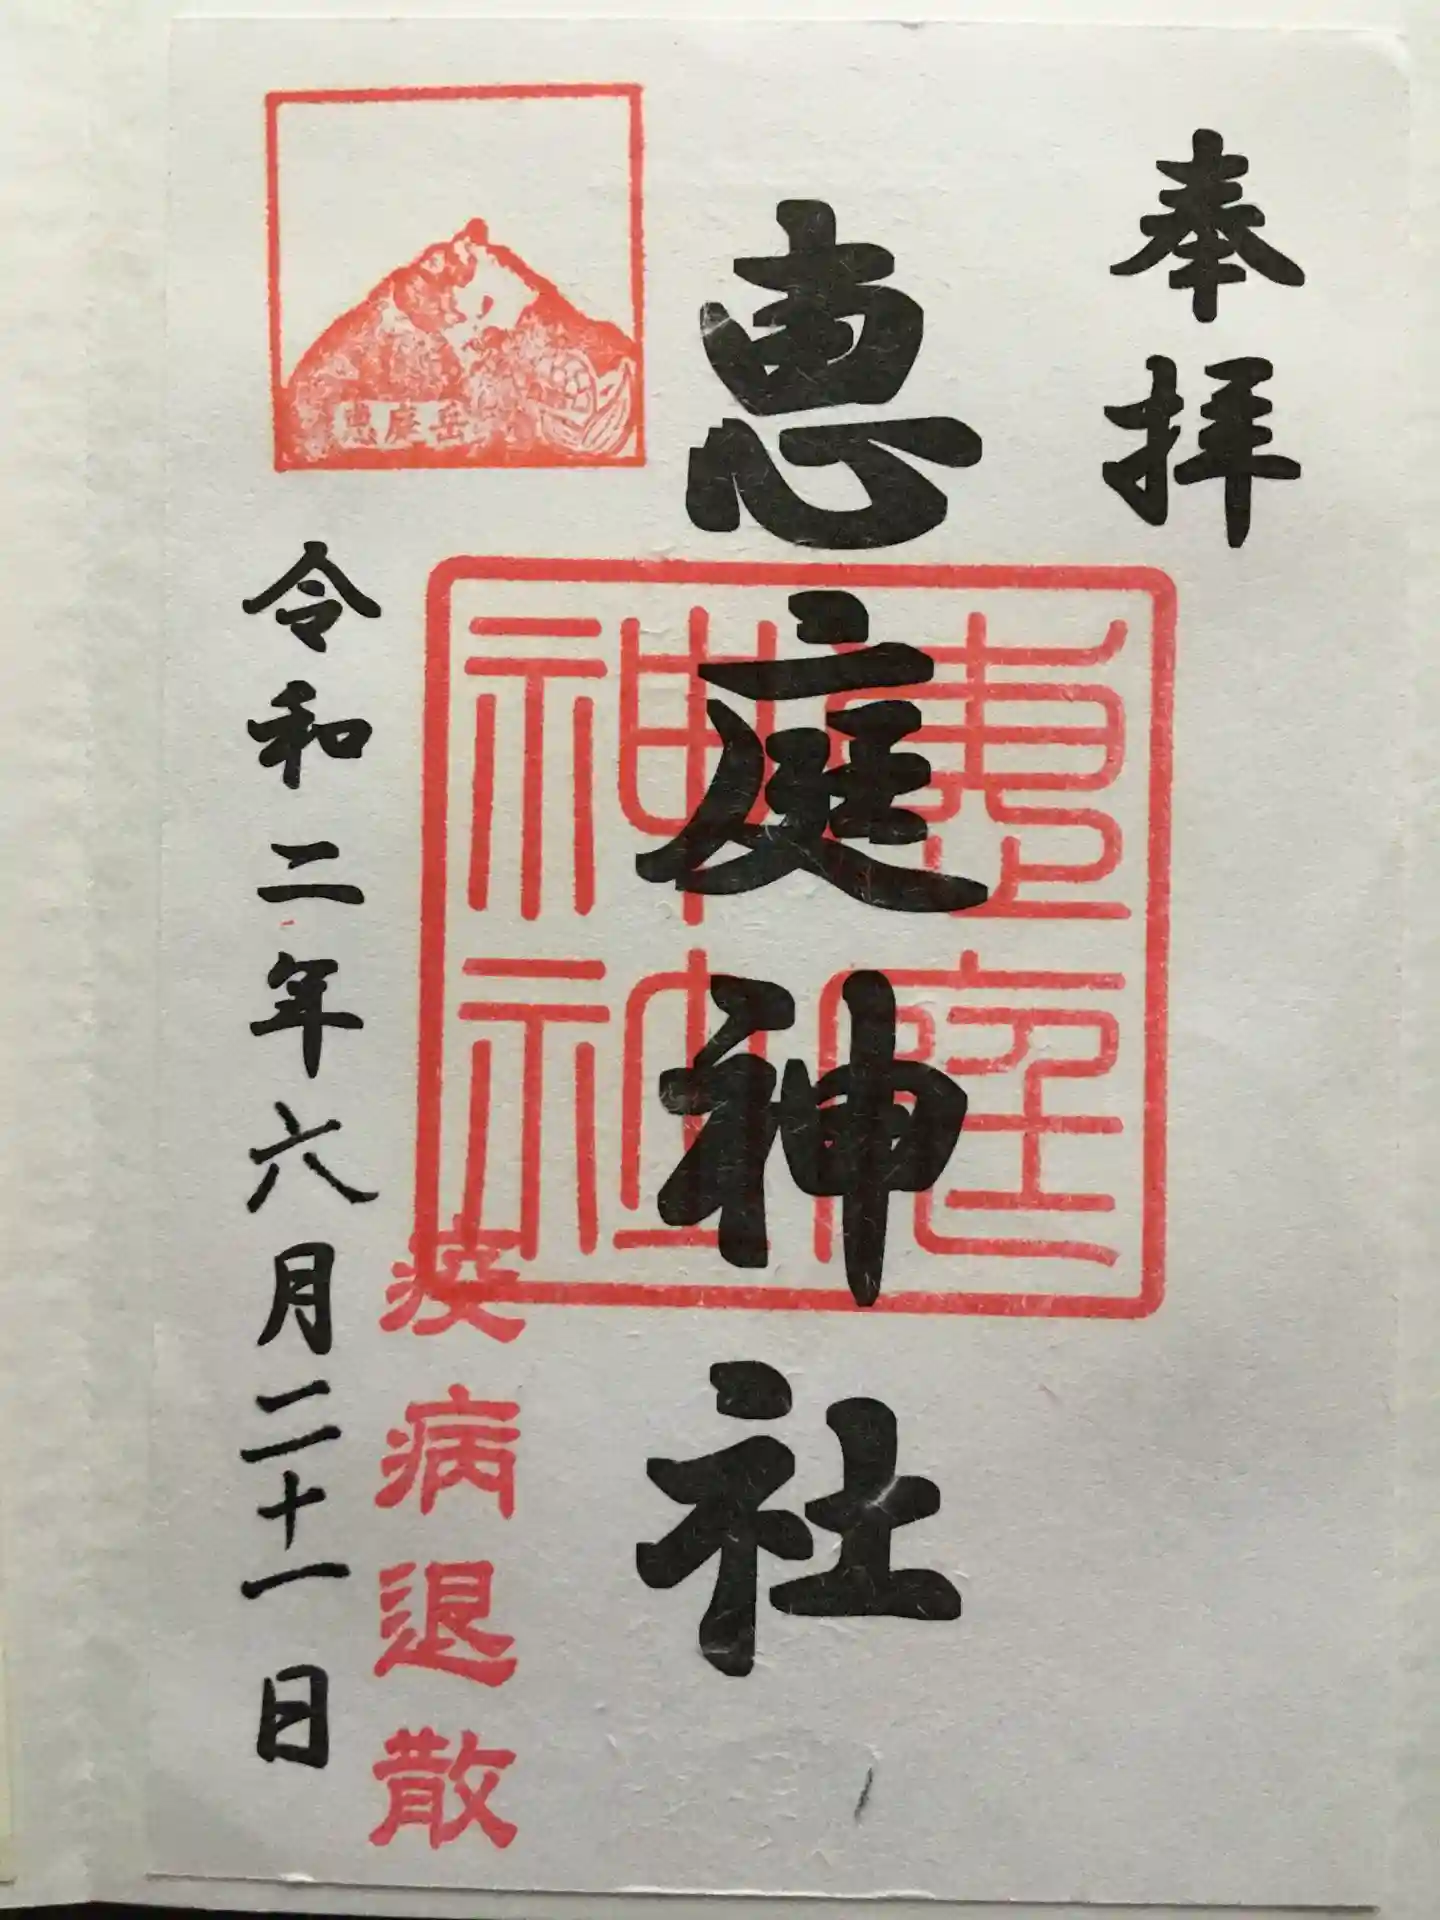 奉拝
恵庭神社
恵庭神社
疫病退散
恵庭岳
令和二年六月二十一日